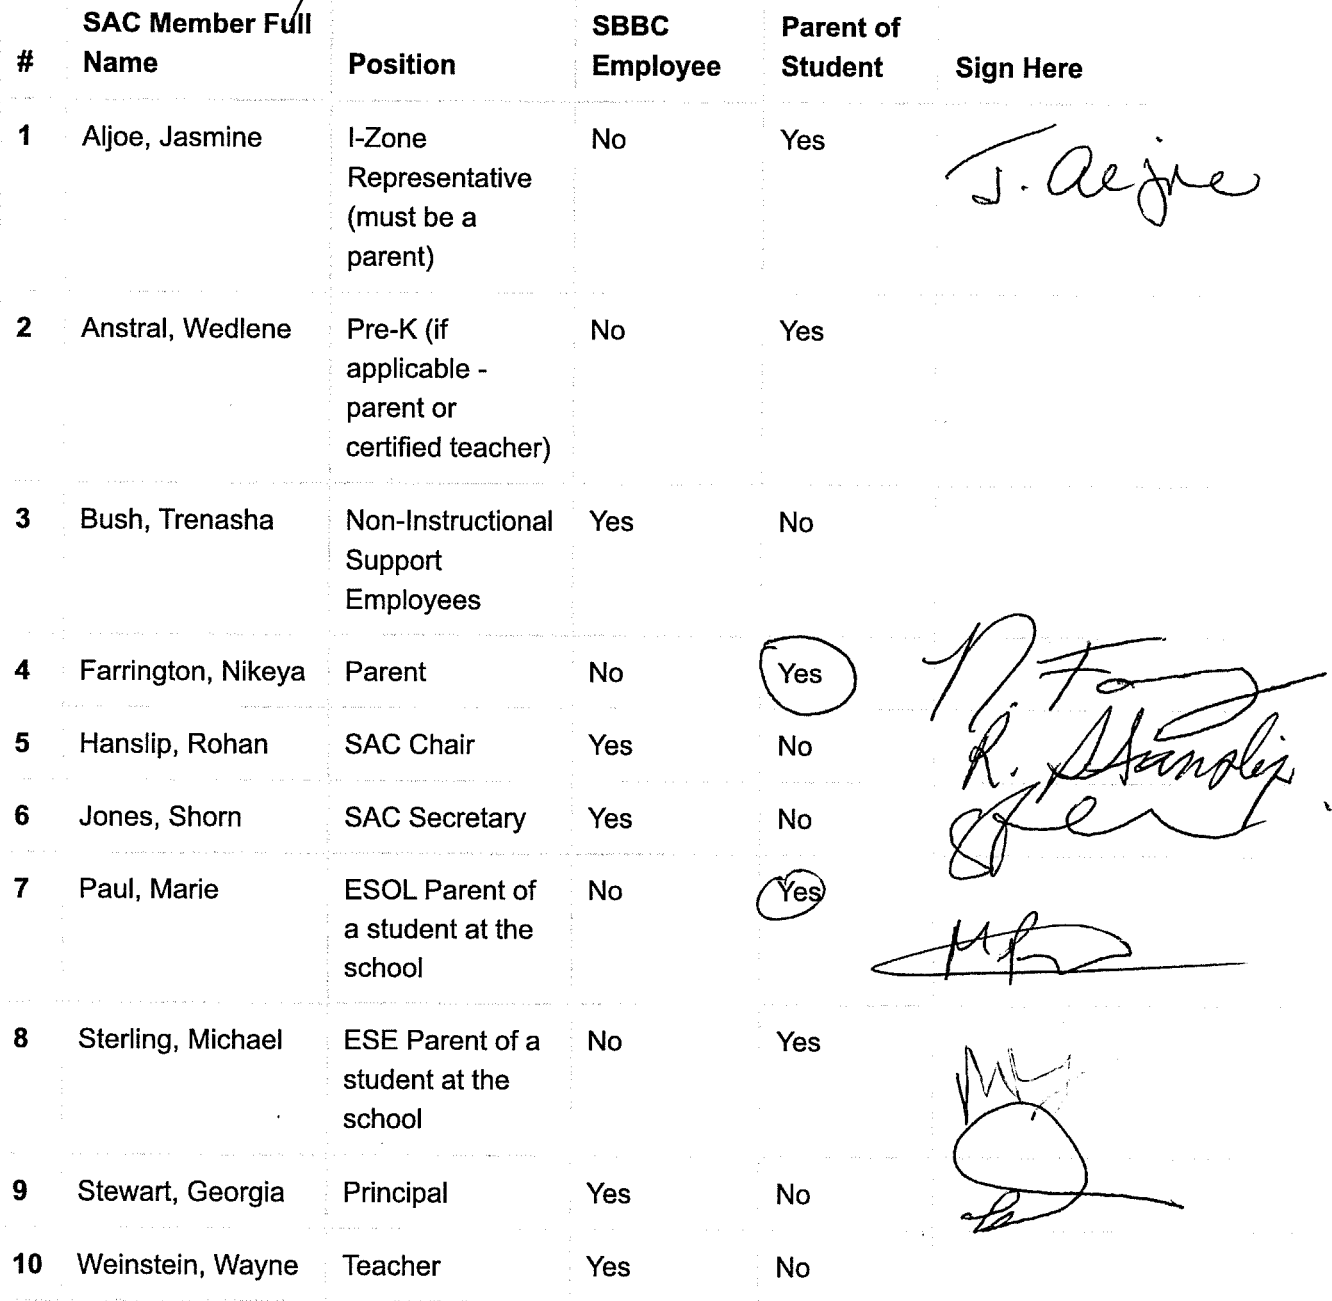 # SAC Member Full Name Position SBBC Employee Parent of Student Sign Here
1 Aljoe, Jasmine I-Zone No Yes J. Aljoe
Representative
(must be a
parent)
2 Anstral, Wedlene Pre-K (if No Yes
applicable -
parent or
certified teacher)
3 Bush, Trenasha Non-Instructional Yes No
Support
Employees
4 Farrington, Nikeya Parent No Yes
5 Hanslip, Rohan SAC Chair Yes No R. Hanslip
6 Jones, Shorn SAC Secretary Yes No
7 Paul, Marie ESOL Parent of No Yes
a student at the
school
8 Sterling, Michael ESE Parent of a No Yes
student at the
school
9 Stewart, Georgia Principal Yes No
10 Weinstein, Wayne Teacher Yes No